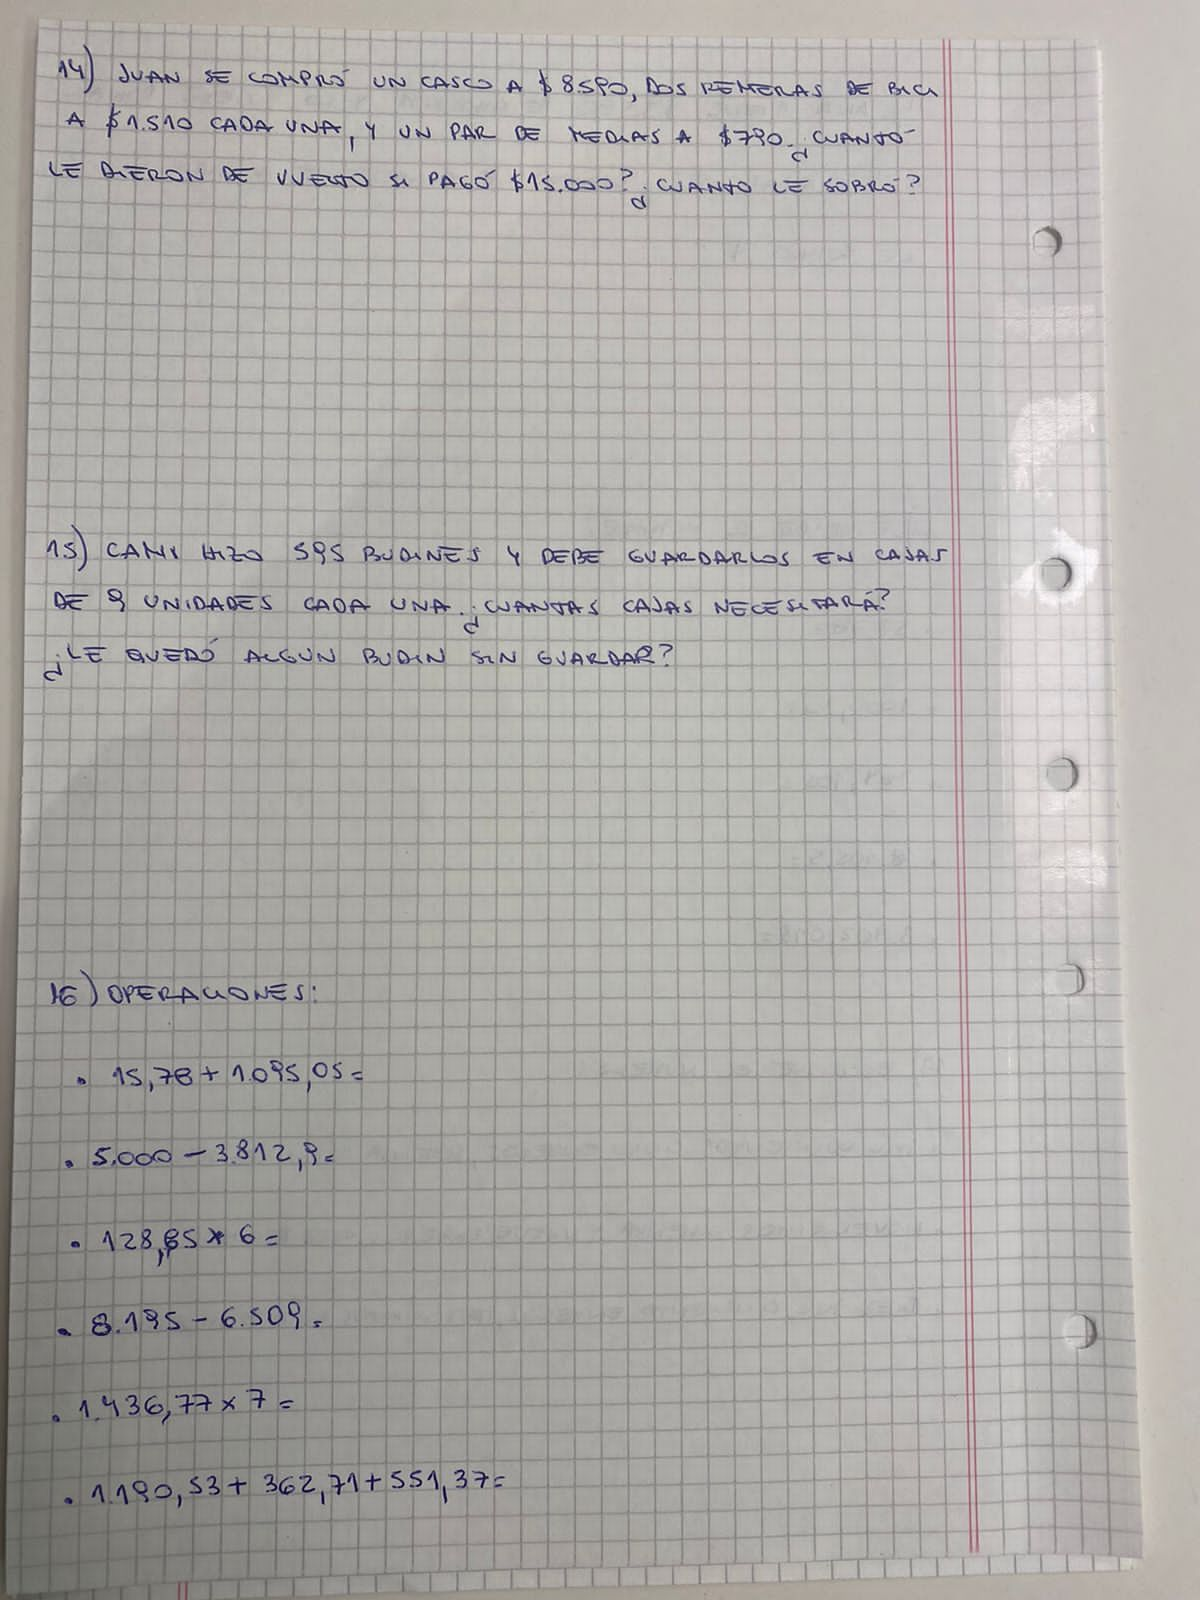 14) JUAN SE COMPRÓ UN CASCO A $8590, DOS REMERAS DE BICI
A $1.510 CADA UNA, Y UN PAR DE MEDIAS A $790. ¿CUANTO
LE DIERON DE VUELTO SI PAGÓ $15.000? ¿CUANTO LE SOBRÓ?
15) CAMI HIZO 595 BUDINES Y DEBE GUARDARLOS EN CAJAS
DE 9 UNIDADES CADA UNA. ¿CUANTAS CAJAS NECESITARÁ?
¿LE QUEDÓ ALGUN BUDIN SIN GUARDAR?
16) OPERACIONES:
• 15,78 + 1.095,05 =
• 5.000 - 3.812,9 =
• 128,65 x 6 =
• 8.195 - 6.509 =
• 1.436,77 x 7 =
• 1.190,53 + 362,71 + 551,37 =